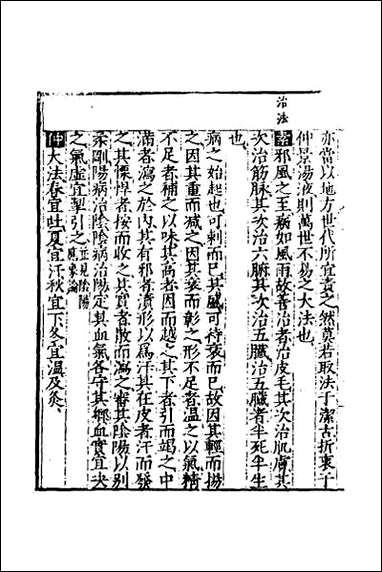 治法
亦當以地方世代所宜責之然莫若取法于潔古折衷于
仲景湯液則萬世不易之大法也
素邪風之至疾如風雨故善治者治皮毛其次治肌膚其
次治筋脉其次治六腑其次治五臟治五臟者半死半生
也
病之始起也可刺而已其盛可待衰而已故因其輕而揚
之因其重而減之因其衰而彰之形不足者溫之以氣精
不足者補之以味其高者因而越之其下者引而竭之中
滿者瀉之於內其有邪者漬形以爲汗其在皮者汗而發
之其慓悍者按而收之其實者散而瀉之審其陰陽以别
柔剛陽病治陰陰病治陽定其血氣各守其鄉血實宜决
之氣虛宜掣引之並見陰陽應象論
仲大法春宜吐夏宜汗秋宜下冬宜溫及灸